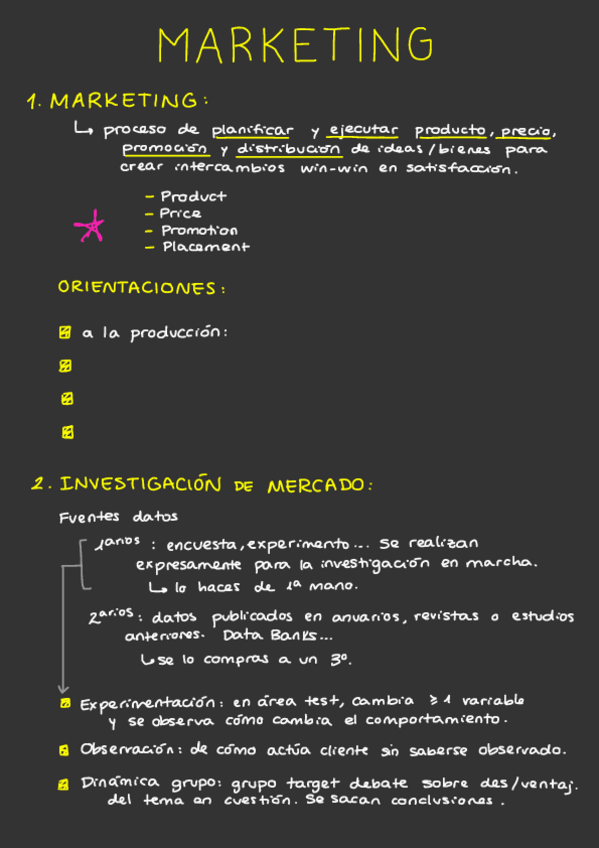 MARKETING
1. MARKETING:
↳ proceso de planificar y ejecutar producto, precio,
promoción y distribución de ideas/bienes para
crear intercambios win-win en satisfacción.
- Product
- Price
- Promotion
- Placement
ORIENTACIONES:
a la producción:
2. INVESTIGACIÓN DE MERCADO:
Fuentes datos
1arios: encuesta, experimento... Se realizan
expresamente para la investigación en marcha.
↳ lo haces de 1ª mano.
2arios: datos publicados en anuarios, revistas o estudios
anteriores. Data Banks...
↳ se lo compras a un 3º.
Experimentación: en área test, cambia ≥ 1 variable
y se observa cómo cambia el comportamiento.
Observación: de cómo actúa cliente sin saberse observado.
Dinámica grupo: grupo target debate sobre des/ventaj.
del tema en cuestión. Se sacan conclusiones.